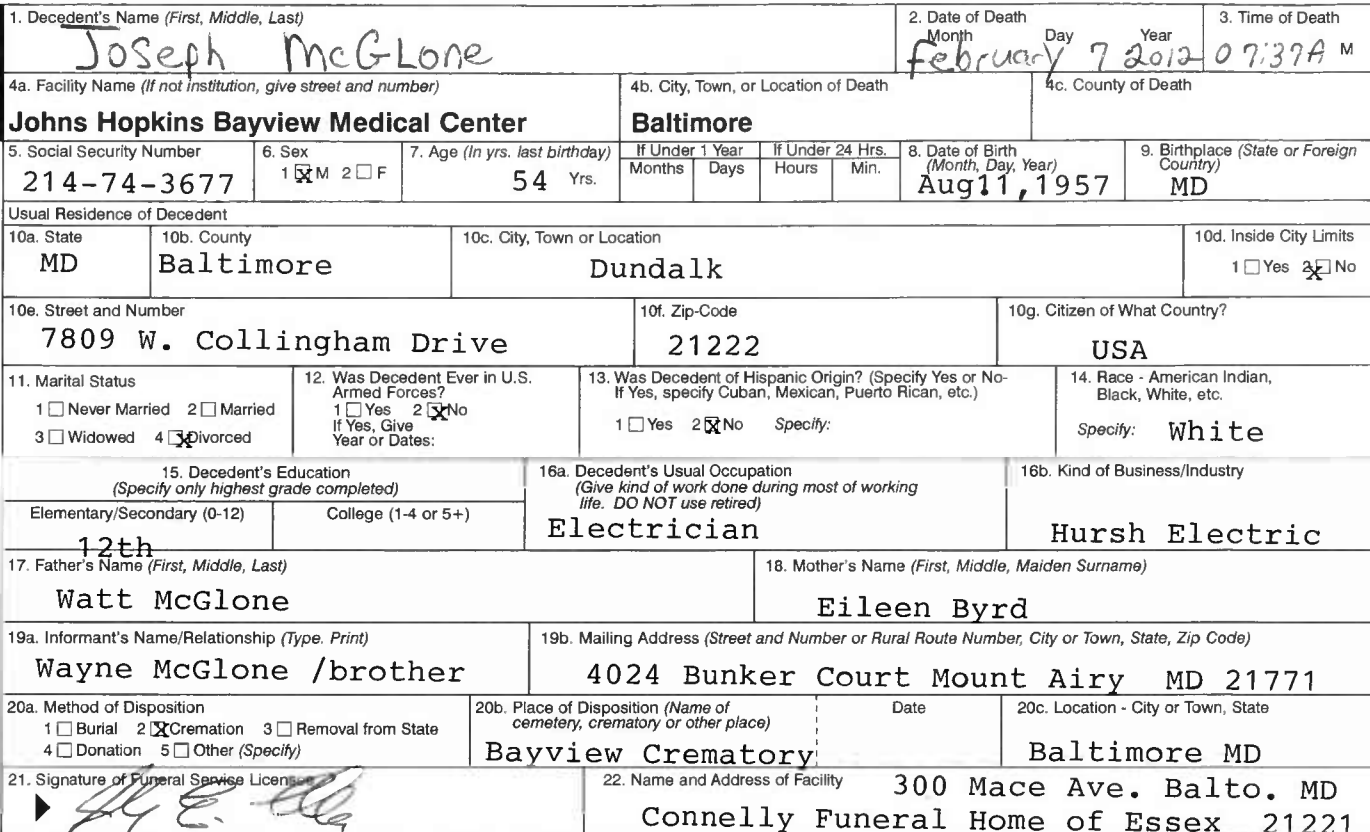 1. Decedent's Name (First, Middle, Last)
Joseph McGlone
2. Date of Death
Month Day Year
February 7 2012
3. Time of Death
07:37A M
4a. Facility Name (If not institution, give street and number)
Johns Hopkins Bayview Medical Center
4b. City, Town, or Location of Death
Baltimore
4c. County of Death
5. Social Security Number
214-74-3677
6. Sex
1 ☒ M 2 ☐ F
7. Age (In yrs. last birthday)
54 Yrs.
If Under 1 Year
Months Days
If Under 24 Hrs.
Hours Min.
8. Date of Birth
(Month, Day, Year)
Aug11,1957
9. Birthplace (State or Foreign
Country)
MD
Usual Residence of Decedent
10a. State
MD
10b. County
Baltimore
10c. City, Town or Location
Dundalk
10d. Inside City Limits
1 ☐ Yes 2 ☒ No
10e. Street and Number
7809 W. Collingham Drive
10f. Zip-Code
21222
10g. Citizen of What Country?
USA
11. Marital Status
1 ☐ Never Married 2 ☐ Married
3 ☐ Widowed 4 ☒ Divorced
12. Was Decedent Ever in U.S.
Armed Forces?
1 ☐ Yes 2 ☒ No
If Yes, Give
Year or Dates:
13. Was Decedent of Hispanic Origin? (Specify Yes or No-
If Yes, specify Cuban, Mexican, Puerto Rican, etc.)
1 ☐ Yes 2 ☒ No Specify:
14. Race - American Indian,
Black, White, etc.
Specify: White
15. Decedent's Education
(Specify only highest grade completed)
Elementary/Secondary (0-12)
12th
College (1-4 or 5+)
16a. Decedent's Usual Occupation
(Give kind of work done during most of working
life. DO NOT use retired)
Electrician
16b. Kind of Business/Industry
Hursh Electric
17. Father's Name (First, Middle, Last)
Watt McGlone
18. Mother's Name (First, Middle, Maiden Surname)
Eileen Byrd
19a. Informant's Name/Relationship (Type. Print)
Wayne McGlone /brother
19b. Mailing Address (Street and Number or Rural Route Number, City or Town, State, Zip Code)
4024 Bunker Court Mount Airy MD 21771
20a. Method of Disposition
1 ☐ Burial 2 ☒ Cremation 3 ☐ Removal from State
4 ☐ Donation 5 ☐ Other (Specify)
20b. Place of Disposition (Name of
cemetery, crematory or other place)
Bayview Crematory
Date
20c. Location - City or Town, State
Baltimore MD
21. Signature of Funeral Service Licensee
22. Name and Address of Facility 300 Mace Ave. Balto. MD
Connelly Funeral Home of Essex 21221